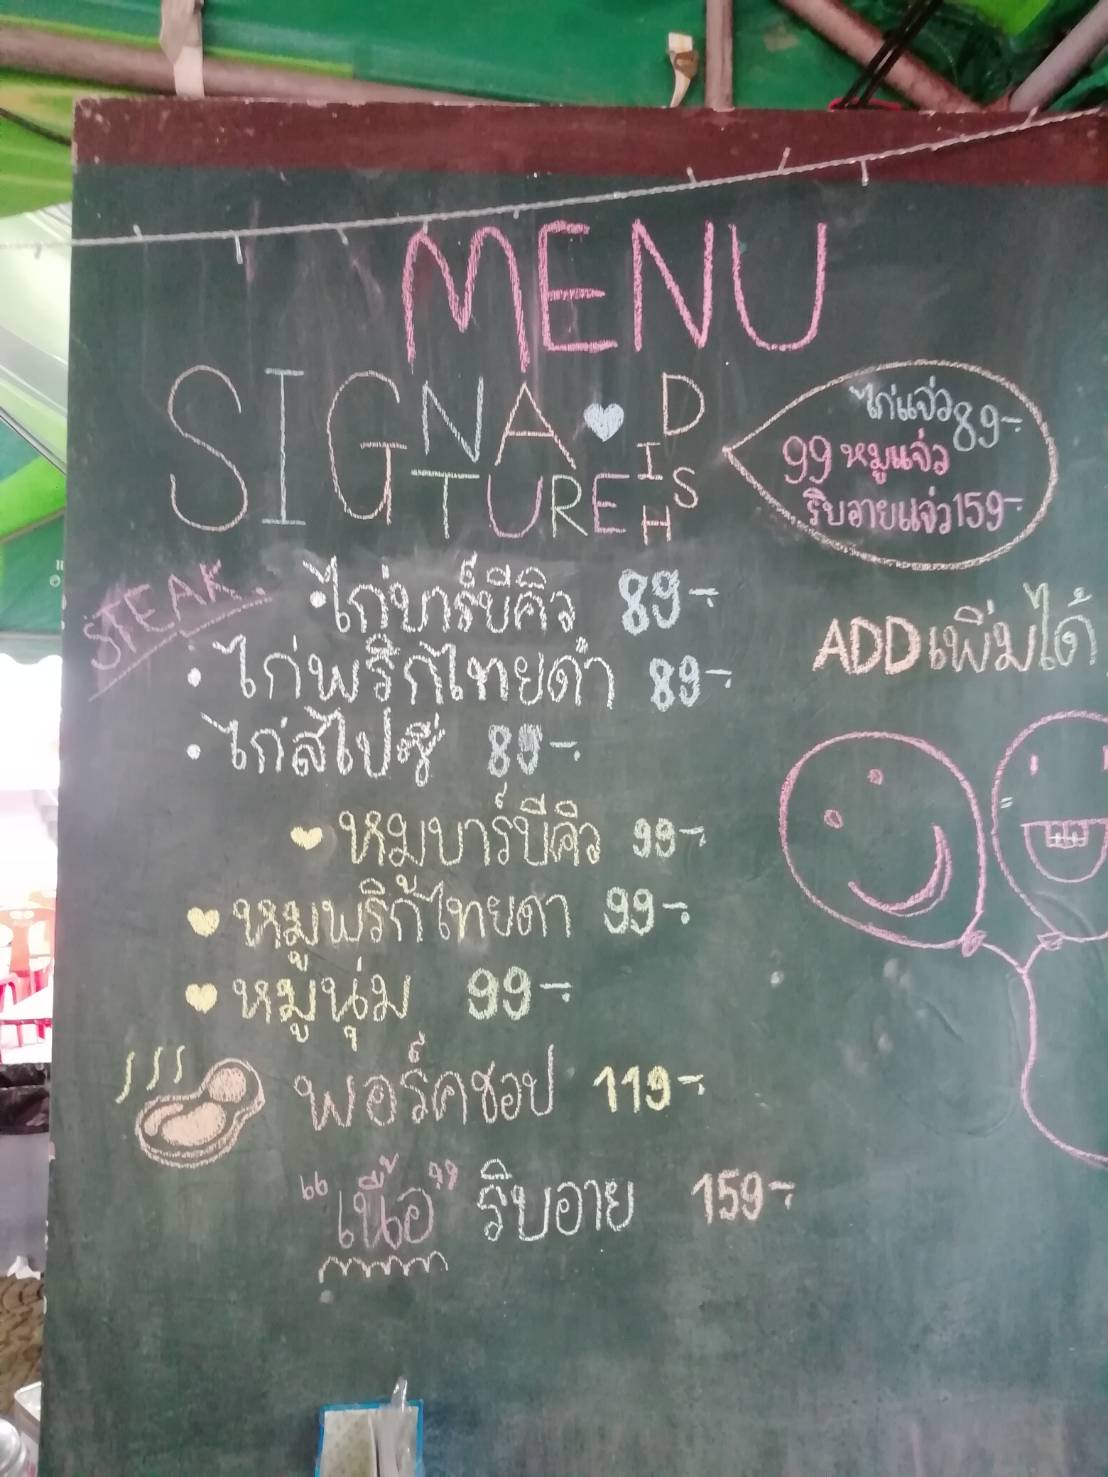 MENU
SIGNATURE DISH
ไก่แจ่ว 89-
99 หมูแจ่ว
ริบอายแจ่ว 159-
STEAK.
• ไก่บาร์บีคิว 89-
• ไก่พริกไทยดำ 89-
• ไก่สไปซี่ 89-
ADD เพิ่มได้
หมบาร์บีคิว 99-
หมูพริกไทยดา 99-
หมูนุ่ม 99-
พอร์คชอป 119-
"เนื้อ" ริบอาย 159-